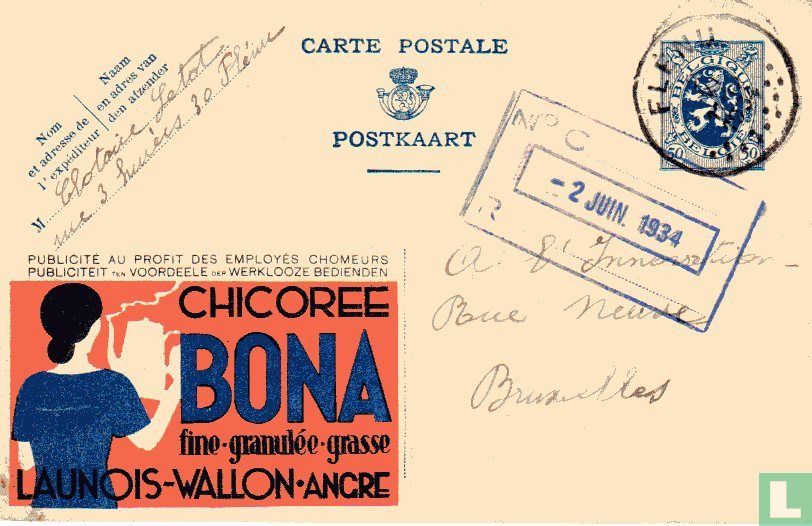 CARTE POSTALE
POSTKAART
Nom
et adresse de
l'expéditeur
Naam
en adres van
den afzender
M Clotaire Letot
rue 3 30 Flénu
BELGIQUE
BELGIË
50 50
FLÉNU
No C
- 2 JUIN. 1934
R
PUBLICITÉ AU PROFIT DES EMPLOYÉS CHOMEURS
PUBLICITEIT TEN VOORDEELE DER WERKLOOZE BEDIENDEN
CHICOREE
BONA
fine·granulée·grasse
LAUNOIS-WALLON·ANGRE
A l'Innovation
Rue Neuve
Bruxelles
L